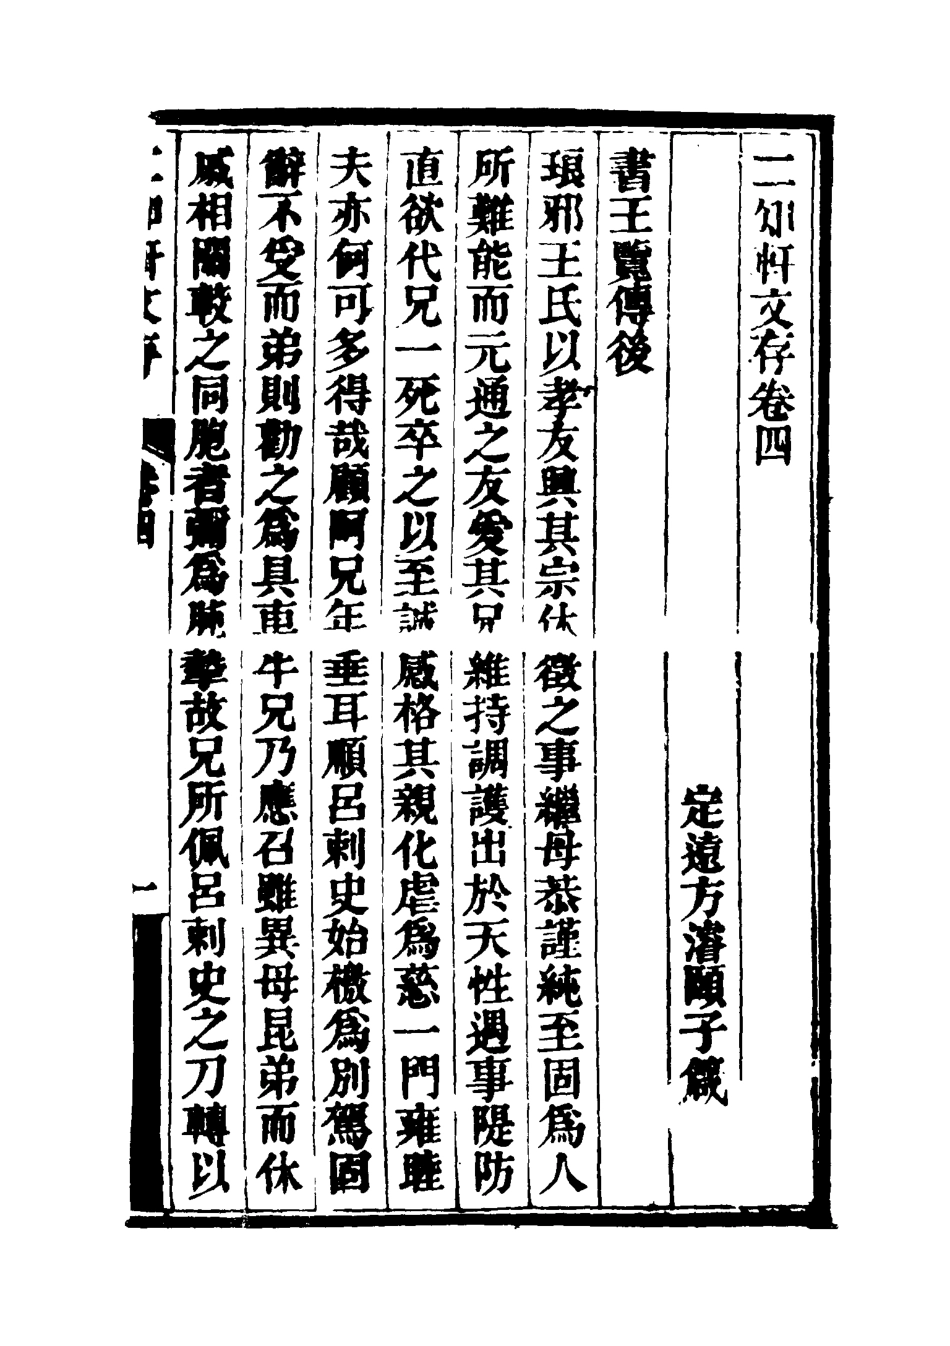 二知軒文存卷四
定遠方濬頤子箴
書王覽傳後
琅邪王氏以孝友興其宗休徵之事繼母恭謹純至固爲人
所難能而元通之友愛其兄維持調護出於天性遇事隄防
直欲代兄一死卒之以至誠感格其親化虐爲慈一門雍睦
夫亦何可多得哉顧阿兄年垂耳順呂刺史始檄爲別駕固
辭不受而弟則勸之爲具車牛兄乃應召雖異母昆弟而休
戚相關較之同胞者彌爲肫摯故兄所佩呂刺史之刀轉以
二知軒文存 卷四 一